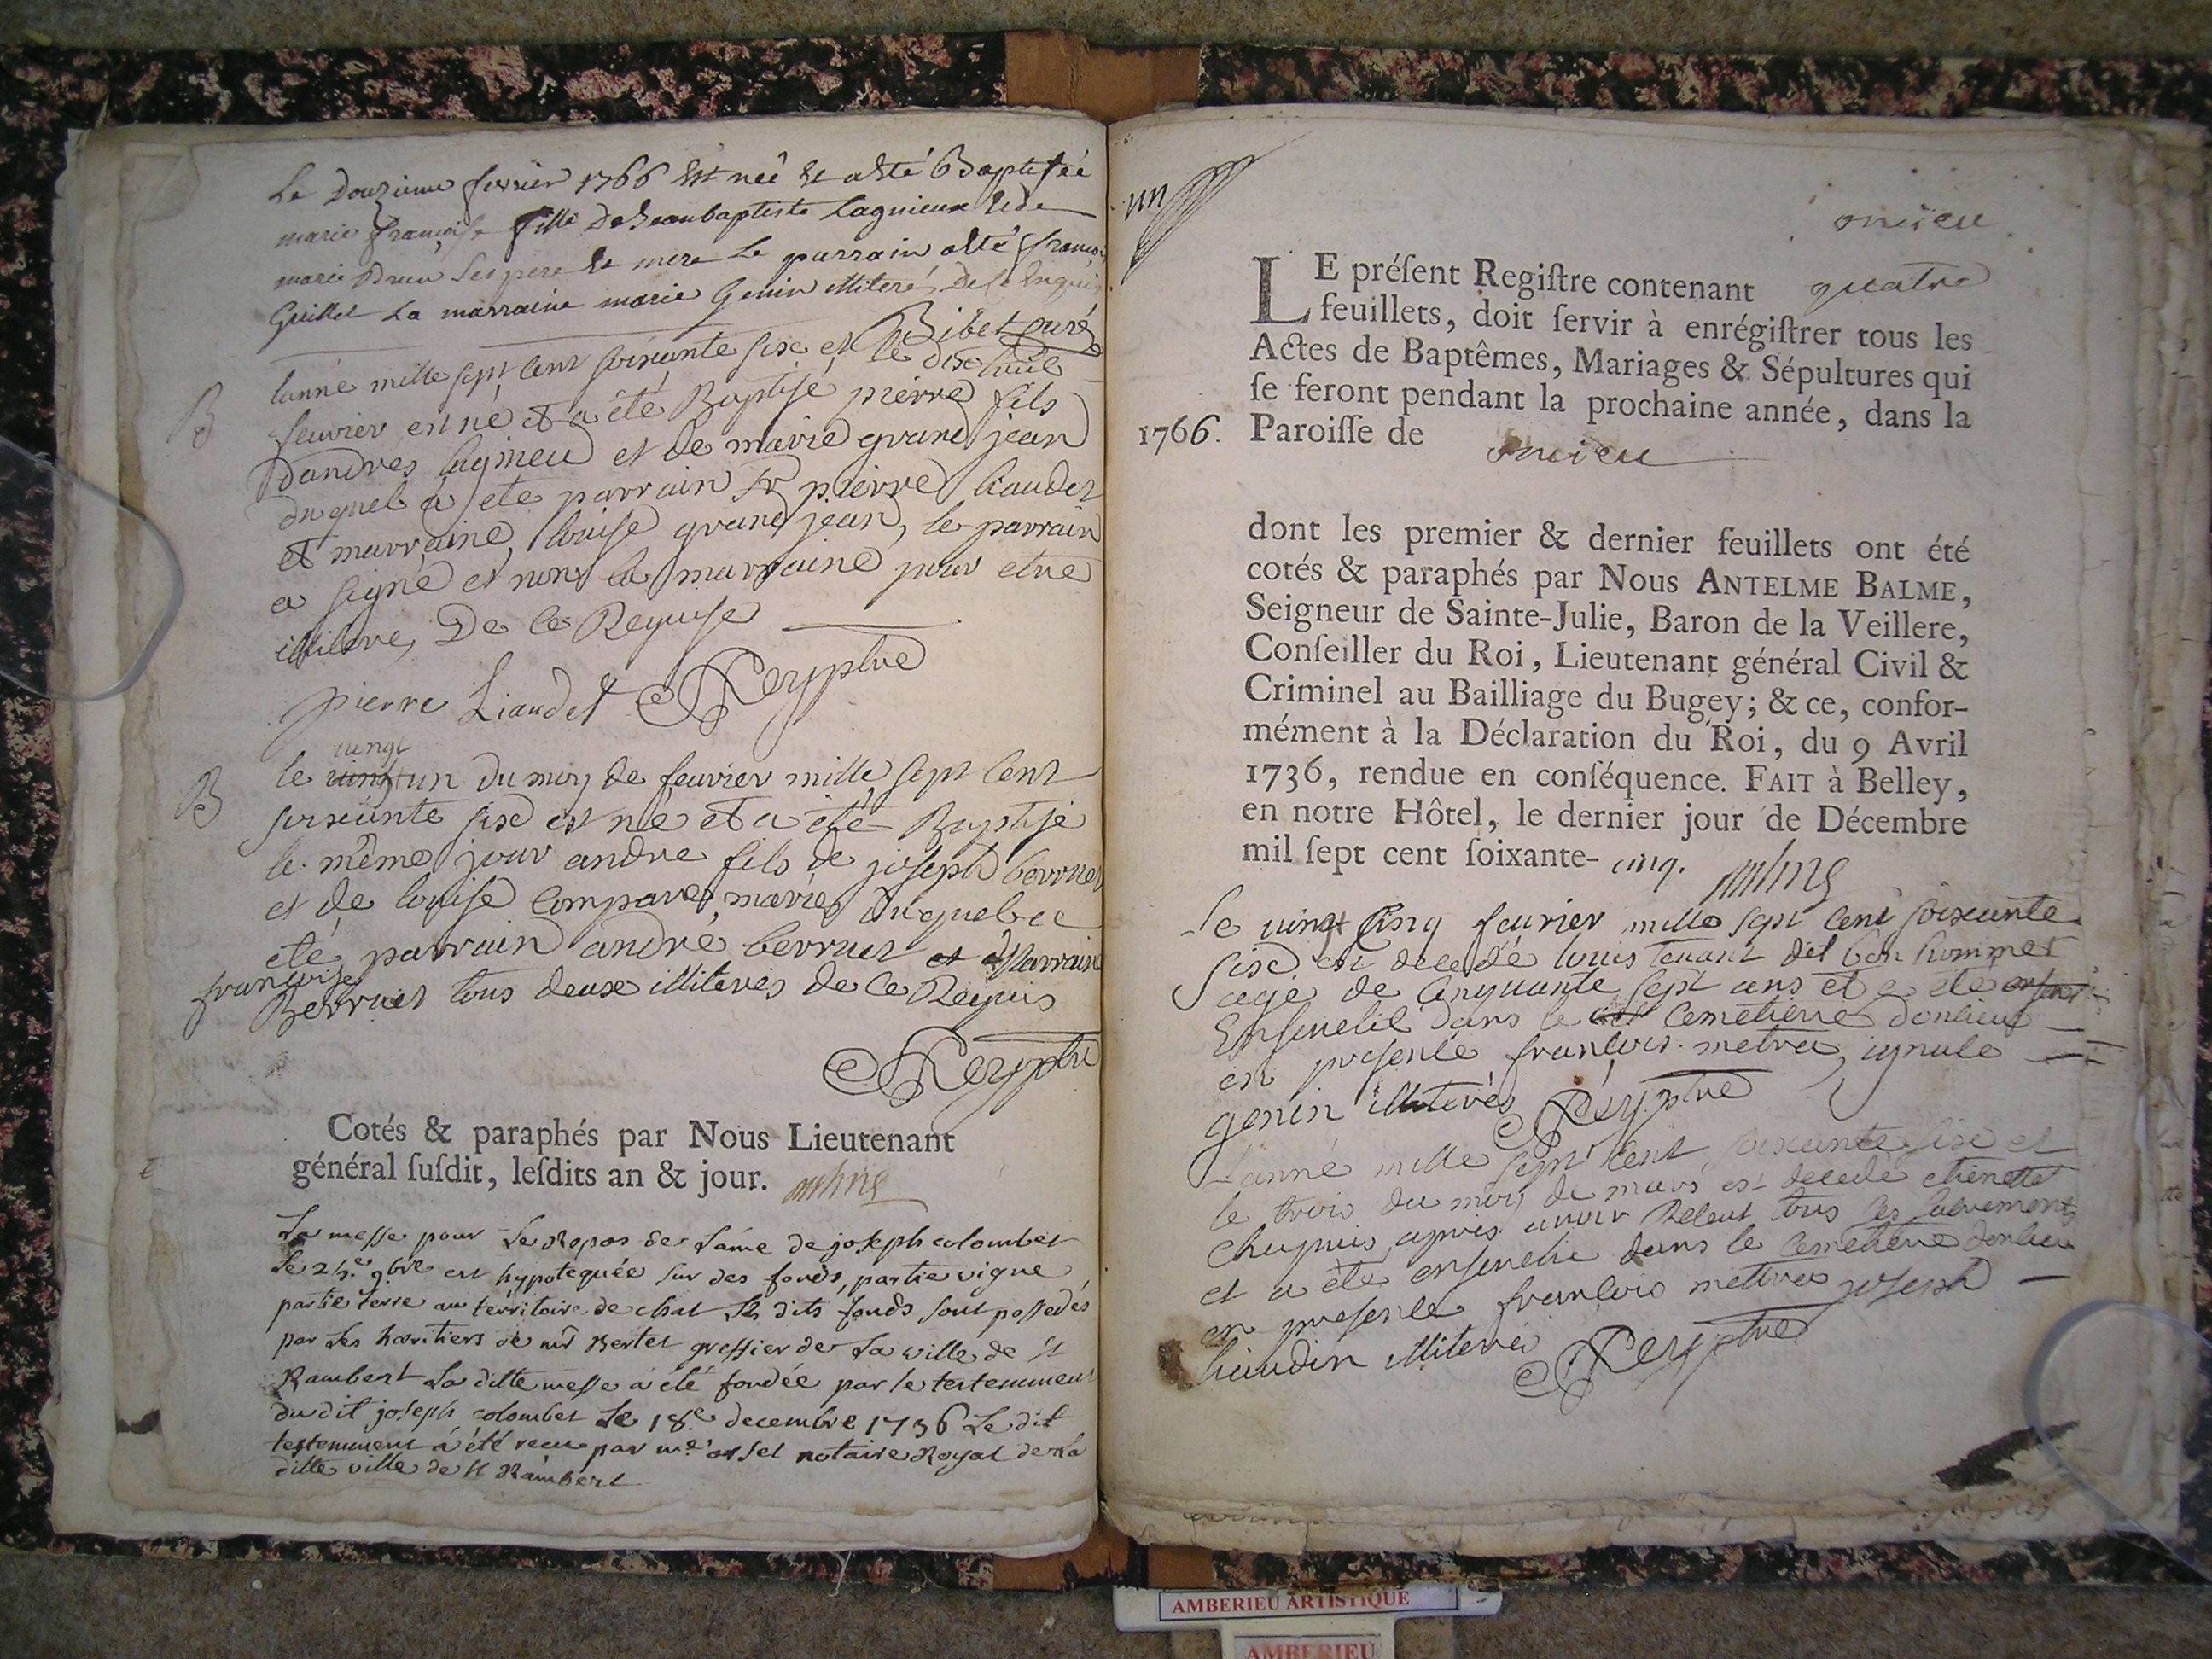 Le Douzieme fevrier 1766 Est neé Et a Eté Baptisée
marie françoise fille De Jeanbaptiste Lagnieux Et de
marie Ses pere Et mere Le parrain a Eté françois
Guillet La marraine marie Genin illiteré De ce Enquis
Bibet curé
lanné mille sept cent soixante sixe et le dixe huit
B
feuvrier est né et a été Baptisé pierre fils
dandres lagnieu et de marie grand jean
duquel a ete parrain Sr pierre liaudet
et marraine louise grand jean, le parrain
a signé et non la marraine pour etre
illitere, De ce Requise
pierre Liaudet Rey ptre
vingt
B
le vingt un du moy de feuvrier mille sept cent
soixante sixe est né et a été Baptisé
le même jour andre fils de joseph berruet
et de louise comparet, mariés duquel a
été parrain andre berruet et Marraine
françoise
Berruet tous deuxe illiterés de ce Requis
Rey ptre
Cotés & paraphés par Nous Lieutenant
général ſuſdit, leſdits an & jour.
La messe pour Le Repos de Lâme de joseph colombet
Le 24.e 9.bre est hypotequée sur des fonds, partie vigne
partie terre au territoire de chat Les dits fonds sont possedés
par Les heritiers de mr Bertet greffier de La ville de St
Rambert La ditte messe a été fondée par le testemment
du dit joseph colombet Le 18.e decembre 1736 Le dit
testemment a été recu par me orset notaire Royal de La
ditte ville de St Rambert
un
onieu
LE préſent Regiſtre contenant quatre
feuillets, doit ſervir à enrégiſtrer tous les
Actes de Baptêmes, Mariages & Sépultures qui
ſe feront pendant la prochaine année, dans la
1766. Paroiſſe de onieu
dont les premier & dernier feuillets ont été
cotés & paraphés par Nous ANTELME BALME,
Seigneur de Sainte-Julie, Baron de la Veillere,
Conſeiller du Roi, Lieutenant général Civil &
Criminel au Bailliage du Bugey; & ce, confor-
mément à la Déclaration du Roi, du 9 Avril
1736, rendue en conſéquence. FAIT à Belley,
en notre Hôtel, le dernier jour de Décembre
mil ſept cent ſoixante- cinq.
Le vingt cinq feuvrier mille sept cent soixante
sixe est decedé louis tenant dit bon hommet
agé de cinquante sept ans et a eté
Ensevelit dans le cemetierre donlieu
en presence francois metra, ignace
genin illiterés Rey ptre
Lanné mille sept cent soixante sixe et
le trois du moy de mars est decedé etienette
Chapuis, apres avoir Receut tous les sacrements
et a été ensevelie dans le cemetierre donlieu
en presence francois mettra joseph
liaudin illiteré Rey ptre
AMBERIEU ARTISTIQUE
AMBERIEU